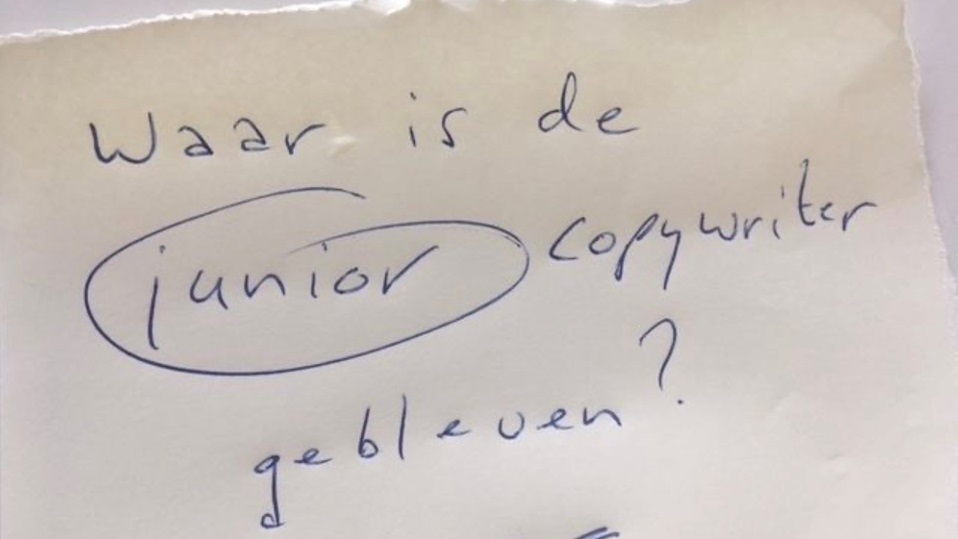 Waar is de
junior copywriter
gebleven?